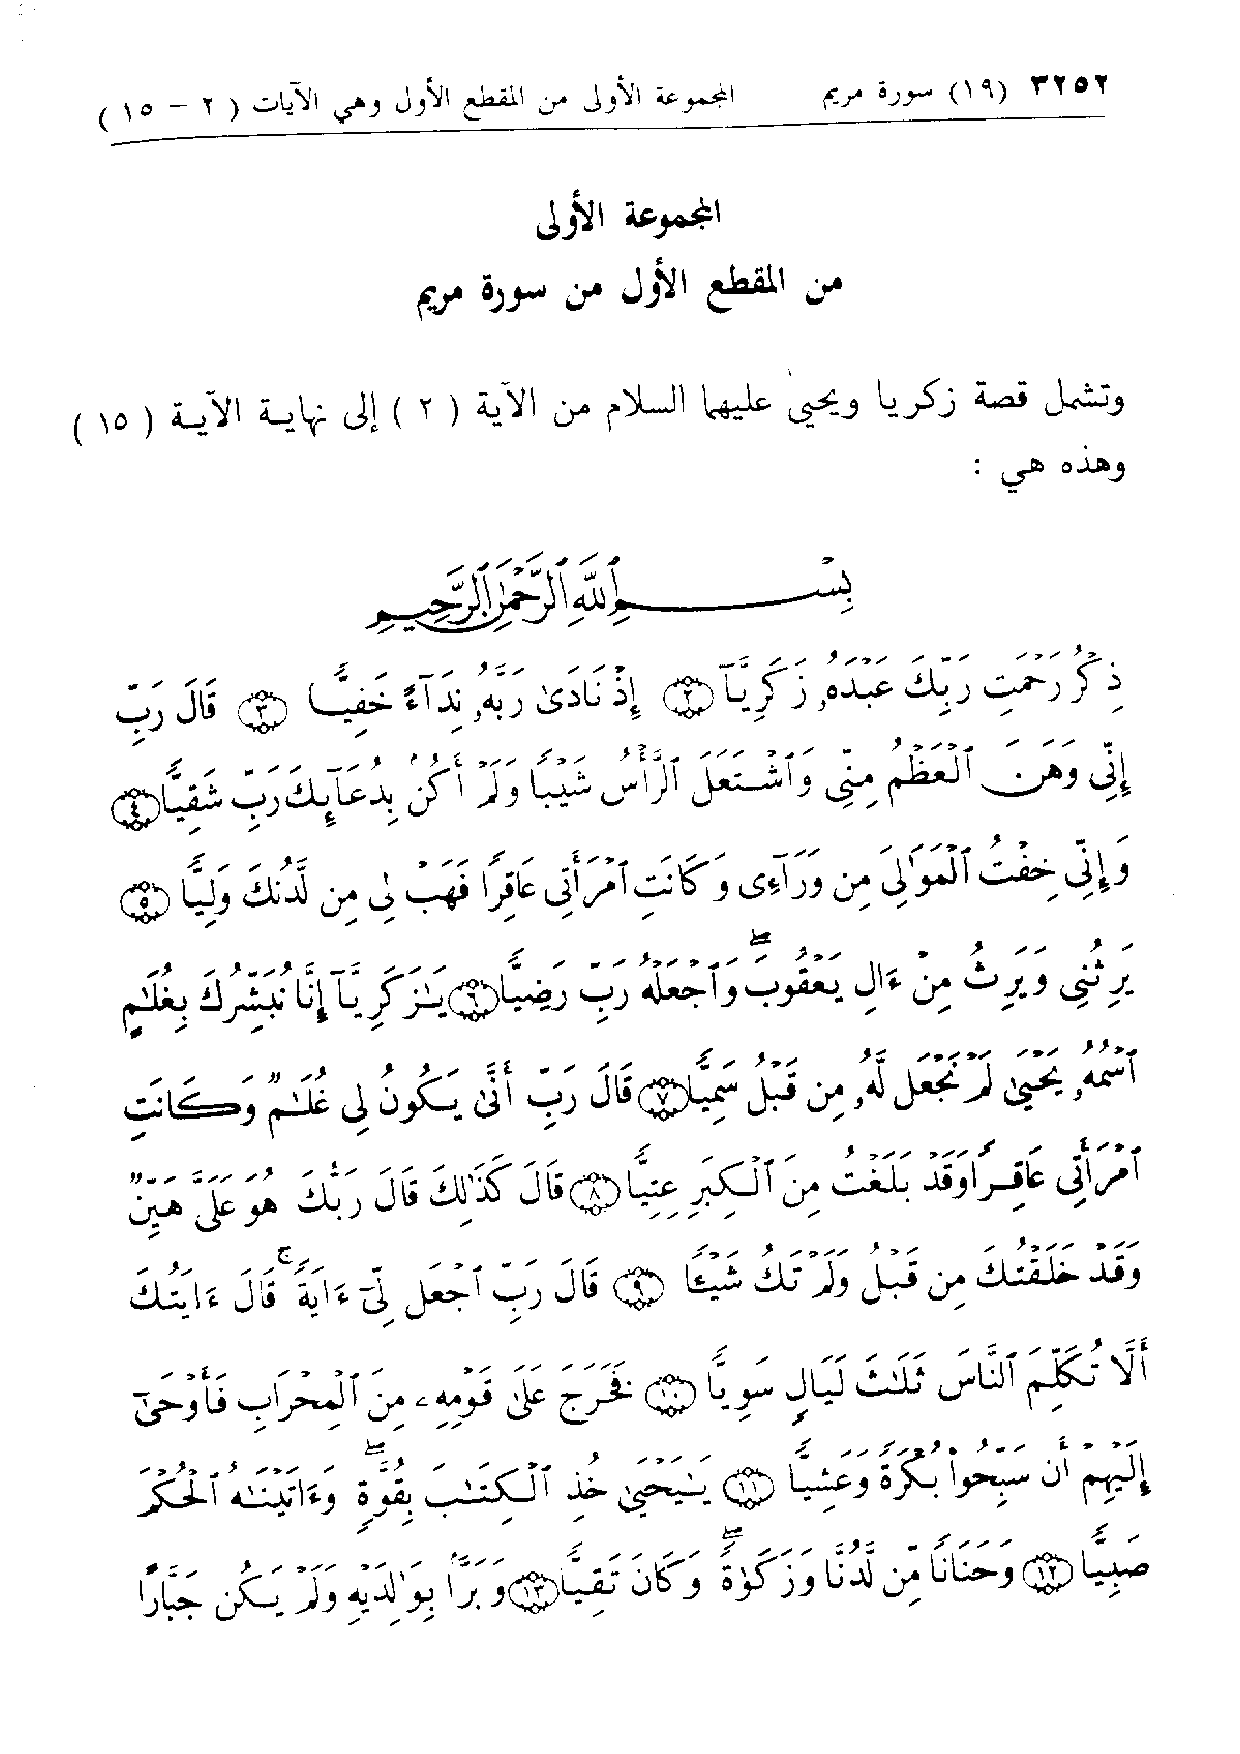 ٣٢٥٢ (١٩) سورة مريم المجموعة الأولى من المقطع الأول وهي الآيات ( ٢ – ١٥ )
المجموعة الأولى
من المقطع الأول من سورة مريم
وتشمل قصة زكريا ويحيىٰ عليهما السلام من الآية ( ٢ ) إلى نهاية الآية ( ١٥ )
وهذه هي :
بِسْمِ ٱللَّهِ ٱلرَّحْمَٰنِ ٱلرَّحِيمِ
ذِكْرُ رَحْمَتِ رَبِّكَ عَبْدَهُۥ زَكَرِيَّآ ﴿٢﴾ إِذْ نَادَىٰ رَبَّهُۥ نِدَآءً خَفِيًّا ﴿٣﴾ قَالَ رَبِّ
إِنِّى وَهَنَ ٱلْعَظْمُ مِنِّى وَٱشْتَعَلَ ٱلرَّأْسُ شَيْبًا وَلَمْ أَكُنۢ بِدُعَآئِكَ رَبِّ شَقِيًّا ﴿٤﴾
وَإِنِّى خِفْتُ ٱلْمَوَٰلِىَ مِن وَرَآءِى وَكَانَتِ ٱمْرَأَتِى عَاقِرًا فَهَبْ لِى مِن لَّدُنكَ وَلِيًّا ﴿٥﴾
يَرِثُنِى وَيَرِثُ مِنْ ءَالِ يَعْقُوبَ ۖ وَٱجْعَلْهُ رَبِّ رَضِيًّا ﴿٦﴾ يَٰزَكَرِيَّآ إِنَّا نُبَشِّرُكَ بِغُلَٰمٍ
ٱسْمُهُۥ يَحْيَىٰ لَمْ نَجْعَل لَّهُۥ مِن قَبْلُ سَمِيًّا ﴿٧﴾ قَالَ رَبِّ أَنَّىٰ يَكُونُ لِى غُلَٰمٌ وَكَانَتِ
ٱمْرَأَتِى عَاقِرًا وَقَدْ بَلَغْتُ مِنَ ٱلْكِبَرِ عِتِيًّا ﴿٨﴾ قَالَ كَذَٰلِكَ قَالَ رَبُّكَ هُوَ عَلَىَّ هَيِّنٌ
وَقَدْ خَلَقْتُكَ مِن قَبْلُ وَلَمْ تَكُ شَيْـًٔا ﴿٩﴾ قَالَ رَبِّ ٱجْعَل لِّىٓ ءَايَةً ۚ قَالَ ءَايَتُكَ
أَلَّا تُكَلِّمَ ٱلنَّاسَ ثَلَٰثَ لَيَالٍ سَوِيًّا ﴿١٠﴾ فَخَرَجَ عَلَىٰ قَوْمِهِۦ مِنَ ٱلْمِحْرَابِ فَأَوْحَىٰٓ
إِلَيْهِمْ أَن سَبِّحُوا۟ بُكْرَةً وَعَشِيًّا ﴿١١﴾ يَٰيَحْيَىٰ خُذِ ٱلْكِتَٰبَ بِقُوَّةٍ ۖ وَءَاتَيْنَٰهُ ٱلْحُكْمَ
صَبِيًّا ﴿١٢﴾ وَحَنَانًا مِّن لَّدُنَّا وَزَكَوٰةً ۖ وَكَانَ تَقِيًّا ﴿١٣﴾ وَبَرًّۢا بِوَٰلِدَيْهِ وَلَمْ يَكُن جَبَّارًا